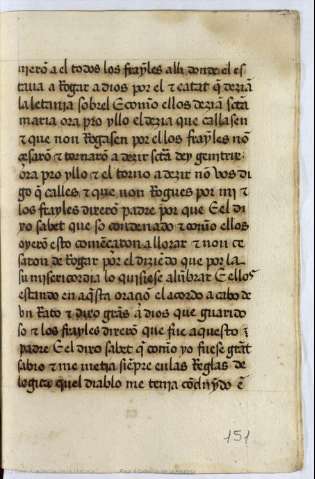 nierõ a el todos los frayles alli donde el es
taua a Rogar a dios por el τ catat q̃ dezian
la letania sobrel E como ellos dezian scta
maria ora pro yllo el dezia que callasen
τ que non Rogasen por el los frayles no
çesarõ τ tornarõ a dezir scta dey genitrix
ora pro yllo τ el torno a dezir nõ vos di
go q̃ calles τ que non Rogues por mi τ
los frayles dixerõ padre por que E el di
xo sabet que so condenado τ como ellos
oyerõ esto comẽçaron a llorar τ non çe
saron de Rogar por el diziẽdo que por la
su misericordia lo quisiese alũbrar E ellos
estando en aq̃sta oraçiõ el acordo a cabo de
vn Rato τ dixo grãs a dios que guarido
so τ los frayles dixerõ que fue aquesto
padre E el dixo sabet q̃ como yo fuese grãt
sabio τ me metia siẽpre en las Reglas de
logica quel diablo me tenia
151